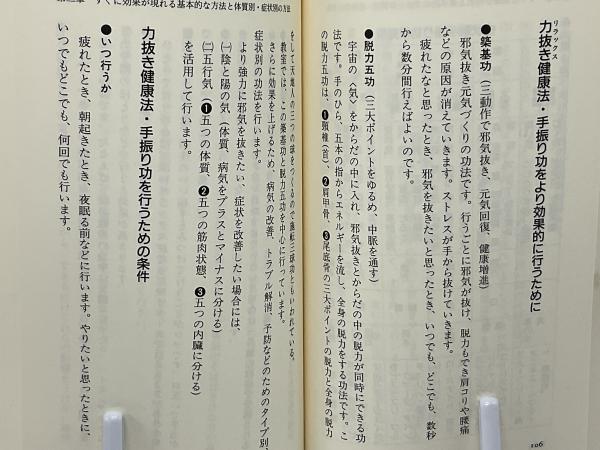 力抜き健康法・手振り功をより効果的に行うために
リラックス
●築基功（三動作で邪気抜き、元気回復、健康増進）
邪気抜き元気づくりの功法です。行うごとに邪気が抜け、脱力もでき肩コリや腰痛
などの原因が消えていきます。ストレスが手から抜けていきます。
疲れたなと思ったとき、邪気を抜きたいと思ったとき、いつでも、どこでも、数秒
から数分間行えばよいのです。
●脱力五功（三大ポイントをゆるめ、中脈を通す）
宇宙の〈気〉をからだの中に入れ、邪気抜きとからだの中の脱力が同時にできる功
法です。手のひら、五本の指からエネルギーを流し、全身の脱力をする功法です。こ
の脱力五功は、❶頸椎（首）、❷肩甲骨、❸尾底骨の三大ポイントの脱力と全身の脱力
106
すぐに効果が現れる基本的な方法と体質別・症状別の方法
をして天地人の三つの球をつくるので
教室では、この築基功と脱力五功を中心に行っています。
さらに効果を上げるため、病気の改善、トラブル解消、予防などのためのタイプ別、
症状別の功法を行います。
より強力に邪気を抜きたい、症状を改善したい場合には、
㈠陰と陽の気（体質、病気をプラスとマイナスに分ける）
㈡五行気、❶五つの体質、❷五つの筋肉状態、❸五つの内臓に分ける）
を活用して行います。
力抜き健康法・手振り功を行うための条件
●いつ行うか
疲れたとき、朝起きたとき、夜眠る前などに行います。やりたいと思ったときに、
いつでもどこでも、何回でも行います。